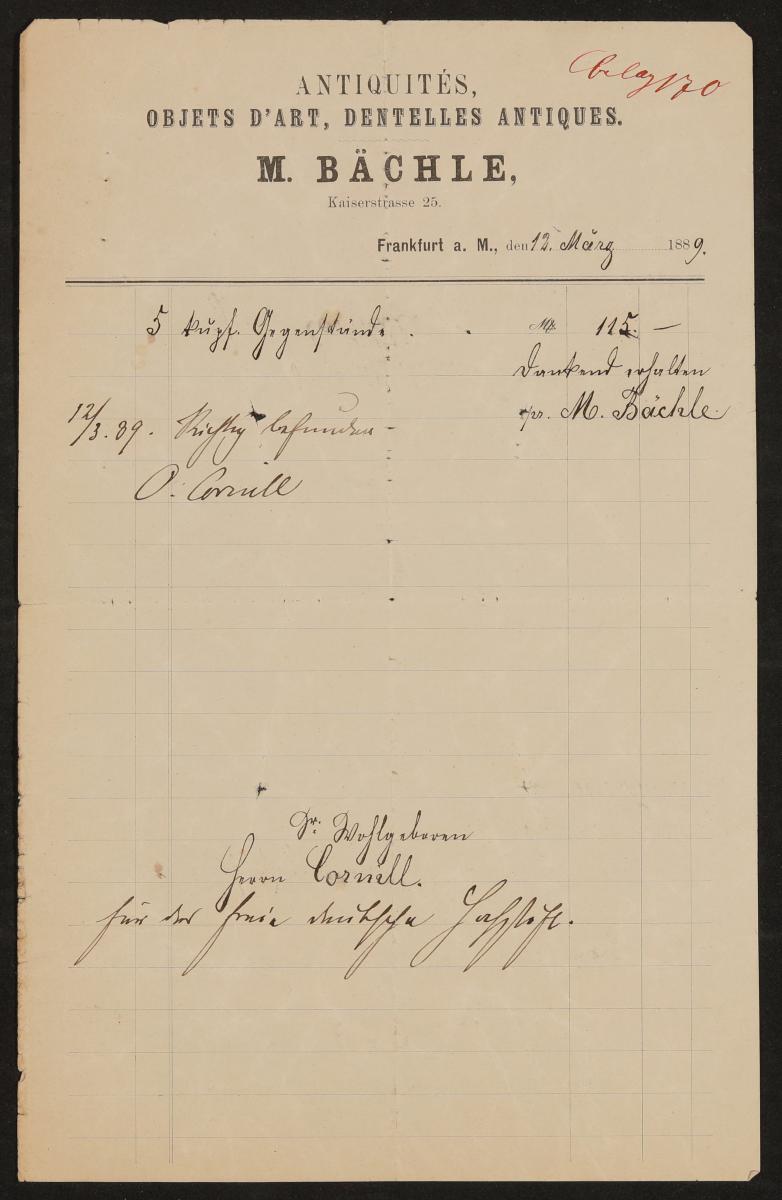 Beleg 170
ANTIQUITÉS,
OBJETS D'ART, DENTELLES ANTIQUES.
M. BÄCHLE,
Kaiserstrasse 25.
Frankfurt a. M., den 12. März 1889.
5 kupf. Gegenstände . . M 115. —
Dankend erhalten
pr. M. Bächle
12/3. 89. Richtig befunden
O. Cornill
Sr. Wohlgeboren
Herrn Cornill.
für das freie deutsche Hochstift.